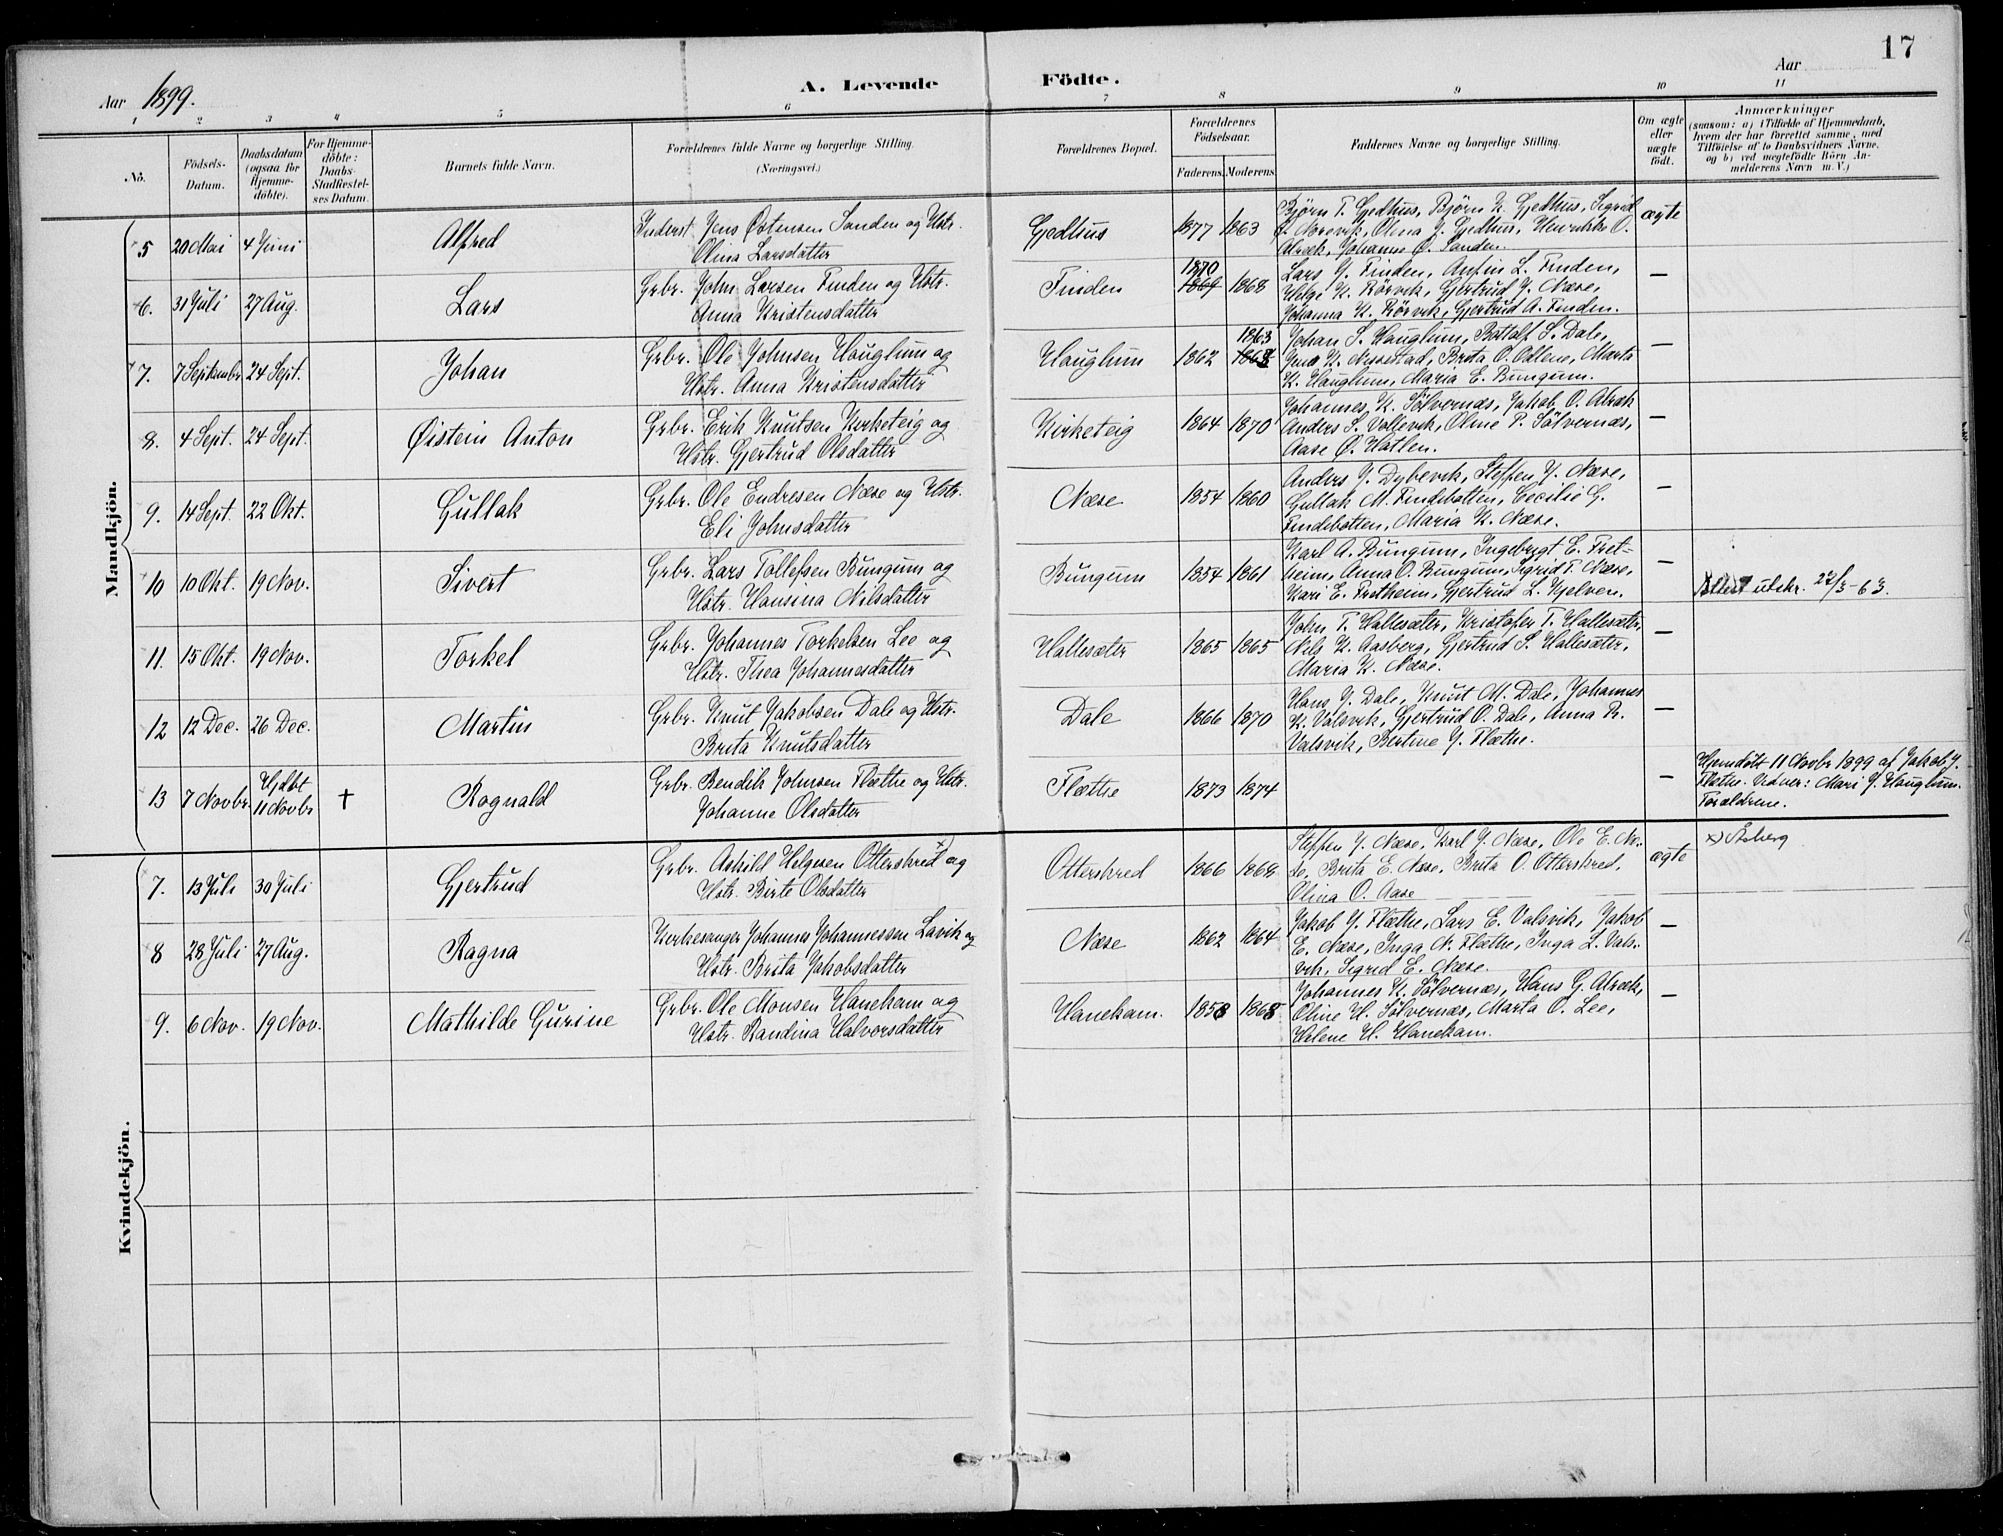 17
Aar 1899.
A. Levende Födte.
Aar
1 2 3 4 5 6 7 8 9 10 11
No.
Födsels-Datum.
Daabsdatum (ogsaa for Hjemmedöbte).
For Hjemmedöbte: Daabs-Stadfæstelses Datum.
Barnets fulde Navn.
Forældrenes fulde Navne og borgerlige Stilling.
(Næringsvei.)
Forældrenes Bopæl.
Forældrenes Födselsaar.
Faderens. Moderens.
Faddernes Navne og borgerlige Stilling.
Om ægte eller uægte födt.
Anmærkninger
(saasom: a) i Tilfælde af Hjemmedaab, hvem der har forrettet samme, med Tilföielse af to Daabsvidners Navne, og b) ved uægtefödte Börn Anmelderens Navn m. V.)
Mandkjön.
5 20 Mai 4 Juni Alfred
Inderst Jens Østensen Sanden og Hstr.
Olina Larsdatter
Gjedhus 1877 1863
Björn T. Gjedhus, Björn K. Gjedhus, Sigrid
Norevik, Olena J. Gjedhus, Henrikke O.
Alræk, Johanne Ø. Sanden.
ægte
6. 31 Juli 27 Aug. Lars
Grbr. John Larsen Finden og Hstr.
Anna Kristensdatter
Finden 1870 1869 1868
Lars J. Finden, Anfin L. Finden,
Helge K. Rörvik, Gjertrud J. Næse,
Johanna K. Rörvik, Gjertrud A. Finden.
—
7. 7 September 24 Sept. Johan
Grbr. Ole Johnsen Hauglum og
Hstr. Anna Kristensdatter
Hauglum 1862 1863 1864
Johan S. Hauglum, Bottolf S. Dale,
Jens K. Nessestad, Brita O. Odlene, Marta
K. Hauglum, Maria E. Bungum.
—
8. 4 Sept. 24 Sept. Øistein Anton
Grbr. Erik Knutsen Kirketeig og
Hstr. Gjertrud Olsdatter
Kirketeig 1864 1870
Johannes K. Sölvernæs, Jakob O. Alræk
Anders S. Valsevik, Oline P. Sölvernæs,
Aase Ø. Hatlen.
—
9. 14 Sept. 22 Okt. Gullak
Grbr. Ole Endresen Næse og Hstr.
Eli Johnsdatter
Næse 1854 1860
Anders J. Dybevik, Steffen J. Næse,
Gullak M. Findebotten, Cecilie G.
Findebotten, Maria K. Næse.
—
10 10 Okt. 19 Nov. Sivert
Grbr. Lars Tollefsen Bungum og
Hstr. Hansina Nilsdatter
Bungum 1854 1861
Karl A. Bungum, Ingebrigt E. Fret=
heim, Anna O. Bungum, Sigrid T. Næse,
Kari E. Fretheim, Gjertrud L. Hjelven.
—
Attest utskr. 22/3-63.
11. 15 Okt. 19 Nov. Torkel
Grbr. Johannes Torkelsen Lee og
Hstr. Thea Johannesdatter
Hallesæter 1865 1865
John T. Hallesæter, Kristofer T. Hallesæter
Nils K. Aasberg, Gjertrud S. Hallesæter,
Maria K. Næse.
—
12 12 Dec. 26 Dec. Martin
Grbr. Knut Jakobsen Dale og Hstr.
Brita Knutsdatter
Dale 1866 1870
Hans J. Dale, Knut M. Dale, Johannes
K. Valsvik, Gjertrud O. Dale, Anna R.
Valsvik, Bertine J. Flæthe.
—
13 7 Novbr. Hjdbt 11 Novbr † Ragnald
Grbr. Bendik Johnsen Flæthe og Hstr.
Johanne Olsdatter
Flæthe 1873 1874
—
Hjemdöbt 11 Novbr 1899 af Jakob J.
Flæthe. Vidner: Mari J. Hauglum.
Forældrene.
Kvindekjön.
7. 13 Juli 30 Juli Gjertrud
Grbr. Askild Helgesen Otterskred x) og
Hstr. Birte Olsdatter
Otterskred 1866 1868
Steffen J. Næse, Karl J. Næse, Ole E. Næ-
se, Brita E. Næse, Brita O. Otterskred,
Olina O. Aase
ægte
x) Åsberg
8 28 Juli 27 Aug. Ragna
Kirkesanger Johannes Johannessen Lavik og
Hstr. Brita Jakobsdatter
Næse 1862 1864
Jakob J. Flæthe, Lars E. Valsvik, Jakob
E. Næse, Inga N. Flæthe, Inga L. Vals-
vik, Sigrid E. Næse.
—
9. 6 Nov. 19 Nov. Mathilde Gurine
Grbr. Ole Monsen Hanekam og
Hstr. Randina Halvorsdatter
Hanekam. 1858 1868
Johannes K. Sölvernæs, Hans G. Alræk,
Oline H. Sölvernæs, Marta O. Lee,
Helene H. Hanekam.
—